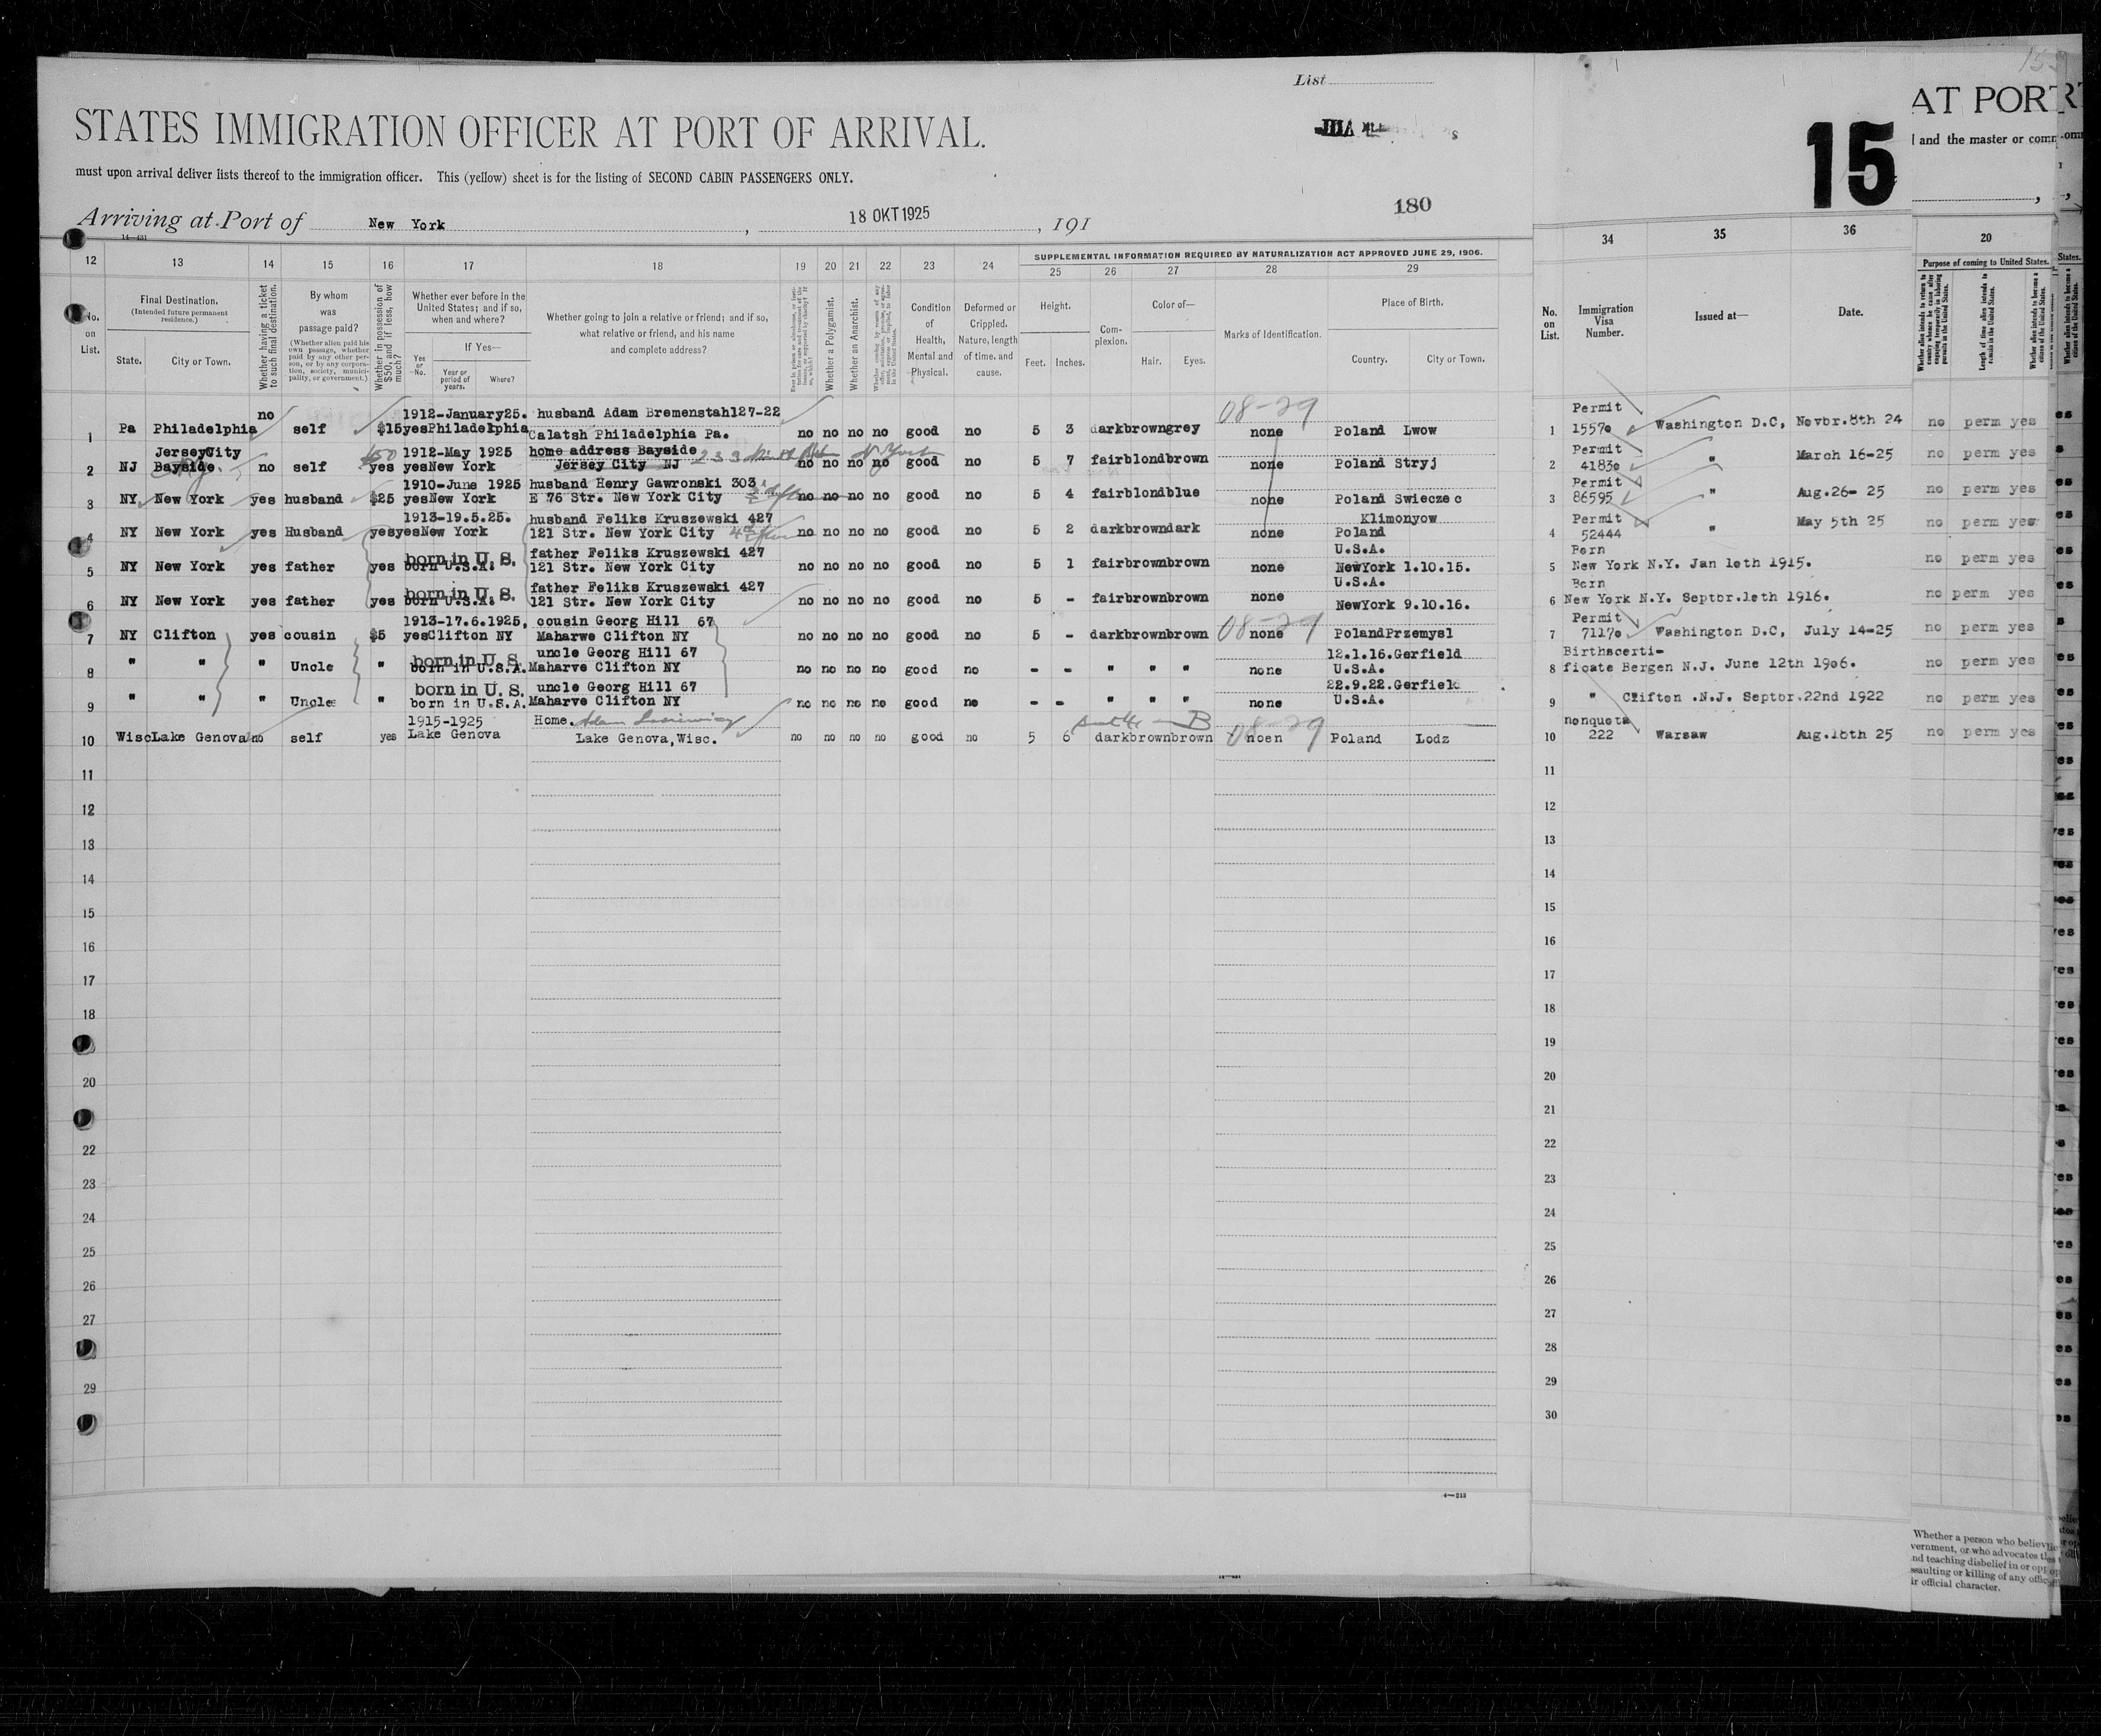 List
STATES IMMIGRATION OFFICER AT PORT OF ARRIVAL.
must upon arrival deliver lists thereof to the immigration officer. This (yellow) sheet is for the listing of SECOND CABIN PASSENGERS ONLY.
Arriving at Port of New York, 18 OKT 1925, 191
180
15
AT PORT
and the master or comm
12 13 14 15 16 17 18 19 20 21 22 23 24 25 26 27 28 29
SUPPLEMENTAL INFORMATION REQUIRED BY NATURALIZATION ACT APPROVED JUNE 29, 1906.
No. on List.
Final Destination.
(Intended future permanent residence.)
State. City or Town.
Whether having a ticket to such final destination.
By whom was passage paid?
(Whether alien paid his own passage, whether paid by any other person, or by any corporation, society, municipality, or government.)
Whether in possession of $50, and if less, how much?
Whether ever before in the United States; and if so, when and where?
Yes or No.
If Yes—
Year or period of years. Where?
Whether going to join a relative or friend; and if so, what relative or friend, and his name and complete address?
Whether a Polygamist.
Whether an Anarchist.
Condition of Health, Mental and Physical.
Deformed or Crippled. Nature, length of time, and cause.
Height.
Feet. Inches.
Complexion.
Color of—
Hair. Eyes.
Marks of Identification.
Place of Birth.
Country. City or Town.
34 35 36
No. on List.
Immigration Visa Number.
Issued at—
Date.
20
Purpose of coming to United States.
Length of time alien intends to remain in the United States.
no 1912-January25. husband Adam Bremenstahl27-22 08-29 Permit
1 Pa Philadelphia self $15 yes Philadelphia Calatsh Philadelphia Pa. no no no no good no 5 3 dark brown grey none Poland Lwow 1 1557o Washington D.C, Novbr.8th 24 no perm yes
Jersey City $50 1912-May 1925 home address Bayside Permit
2 NJ Bayside. no self yes yes New York Jersey City NJ no no no no good no 5 7 fair blond brown none Poland Stryj 2 4183o " March 16-25 no perm yes
1910-June 1925 husband Henry Gawronski 303 Permit
3 NY New York yes husband $25 yes New York E 76 Str. New York City no no no no good no 5 4 fair blond blue none Poland Swieczec 3 86595 " Aug.26- 25 no perm yes
1913-19.5.25. husband Feliks Kruszewski 427 Klimonyow Permit
4 NY New York yes Husband yes yes New York 121 Str. New York City no no no no good no 5 2 dark brown dark none Poland 4 52444 " May 5th 25 no perm yes
born in U. S. father Feliks Kruszewski 427 U.S.A. Born
5 NY New York yes father yes born U.S.A. 121 Str. New York City no no no no good no 5 1 fair brown brown none NewYork 1.10.15. 5 New York N.Y. Jan 1oth 1915. no perm yes
born in U. S. father Feliks Kruszewski 427 U.S.A. Born
6 NY New York yes father yes born U.S.A. 121 Str. New York City no no no no good no 5 - fair brown brown none NewYork 9.10.16. 6 New York N.Y. Septbr.1oth 1916. no perm yes
1913-17.6.1925, cousin Georg Hill 67 08-29 Permit
7 NY Clifton yes cousin $5 yes Clifton NY Maharwe Clifton NY no no no no good no 5 - dark brown brown none Poland Przemysl 7 7117o Washington D.C, July 14-25 no perm yes
born in U. S. uncle Georg Hill 67 12.1.16.Gerfield Birthscerti-
8 " " " Uncle " born in U.S.A. Maharve Clifton NY no no no no good no - - " " " none U.S.A. 8 ficate Bergen N.J. June 12th 19o6. no perm yes
born in U. S. uncle Georg Hill 67 22.9.22.Gerfield
9 " " " Uncle " born in U.S.A. Maharve Clifton NY no no no no good no - - " " " none U.S.A. 9 " Clifton .N.J. Septbr.22nd 1922 no perm yes
1915-1925 Home. 08-29 nonquota
10 Wisc Lake Genova no self yes Lake Genova Lake Genova, Wisc. no no no no good no 5 6 dark brown brown noen Poland Lodz 10 222 Warsaw Aug.18th 25 no perm yes
11 11
12 12
13 13
14 14
15 15
16 16
17 17
18 18
19
20 20
21
22 22
23 23
24 24
25 25
26 26
27 27
28
29 29
30
Whether a person who believ
vernment, or who advocates
nd teaching disbelief in or op
ssaulting or killing of any offic
ir official character.